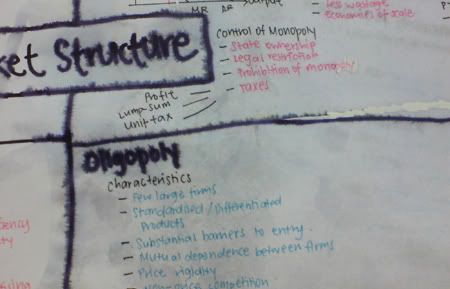 MR AR output
Less wastage
economies of scale
P
ket Structure
Control of Monopoly
- State ownership
- Legal restriction
- Prohibition of monopoly
- Taxes
Profit
Lump-sum
Unit tax
Oligopoly
Characteristics
- Few large firms
- Standardised / Differentiated
Products
- Substantial barriers to entry.
- Mutual dependence between firms
- Price rigidity
- competition
iency
ty